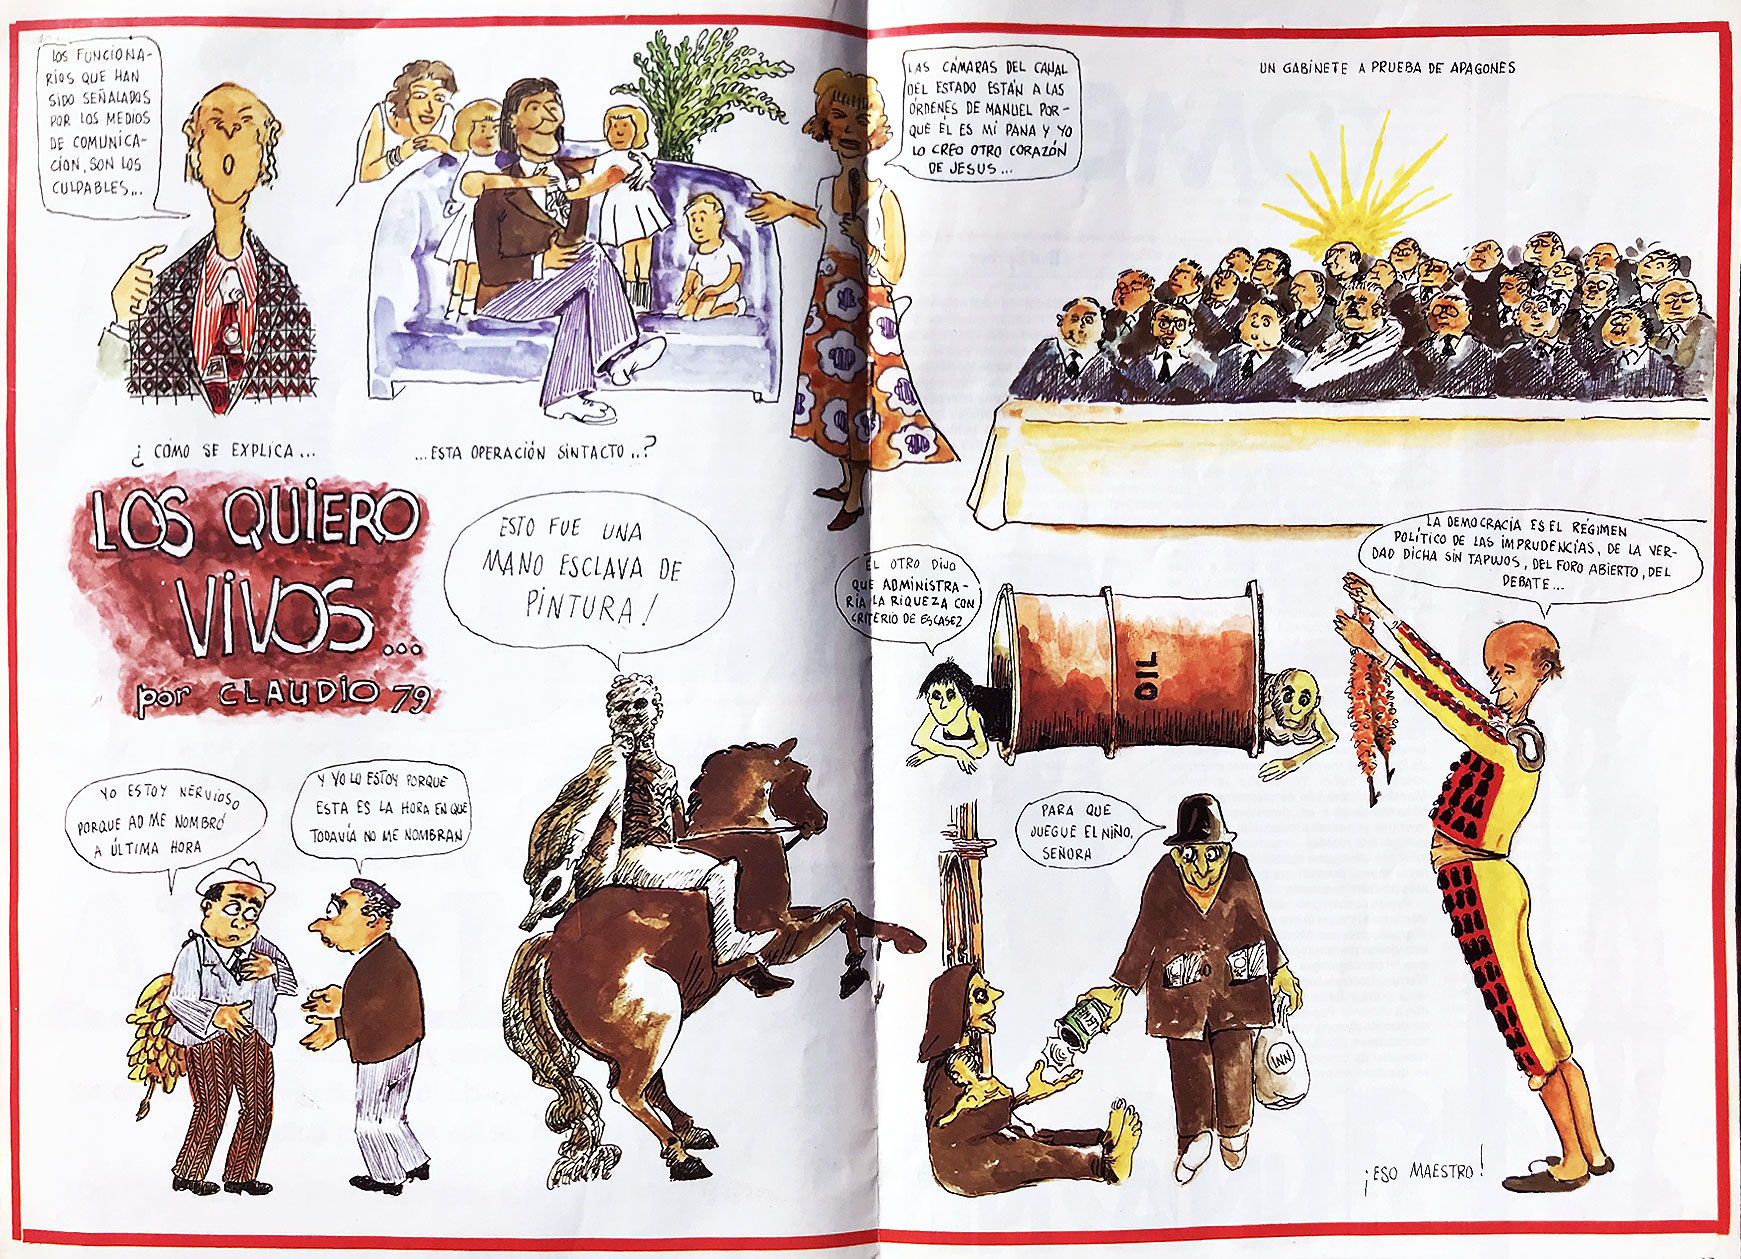 LOS FUNCIONA-
RIOS QUE HAN
SIDO SEÑALADOS
POR LOS MEDIOS
DE COMUNICA-
CIÓN, SON LOS
CULPABLES...
¿CÓMO SE EXPLICA...
...ESTA OPERACIÓN SINTACTO..?
LAS CÁMARAS DEL CANAL
DEL ESTADO ESTÁN A LAS
ÓRDENES DE MANUEL POR-
QUE ÉL ES MI PANA Y YO
LO CREO OTRO CORAZÓN
DE JESUS...
UN GABINETE A PRUEBA DE APAGONES
LOS QUIERO
VIVOS...
por CLAUDIO 79
ESTO FUE UNA
MANO ESCLAVA DE
PINTURA!
EL OTRO DIJO
QUE ADMINISTRA-
RÍA LA RIQUEZA CON
CRITERIO DE ESCASEZ
OIL
LA DEMOCRACIA ES EL RÉGIMEN
POLÍTICO DE LAS IMPRUDENCIAS, DE LA VER-
DAD DICHA SIN TAPUJOS, DEL FORO ABIERTO, DEL
DEBATE...
YO ESTOY NERVIOSO
PORQUE AD ME NOMBRÓ
A ÚLTIMA HORA
Y YO LO ESTOY PORQUE
ESTA ES LA HORA EN QUE
TODAVÍA NO ME NOMBRAN
PARA QUE
JUEGUE EL NIÑO,
SEÑORA
INN
¡ESO MAESTRO!